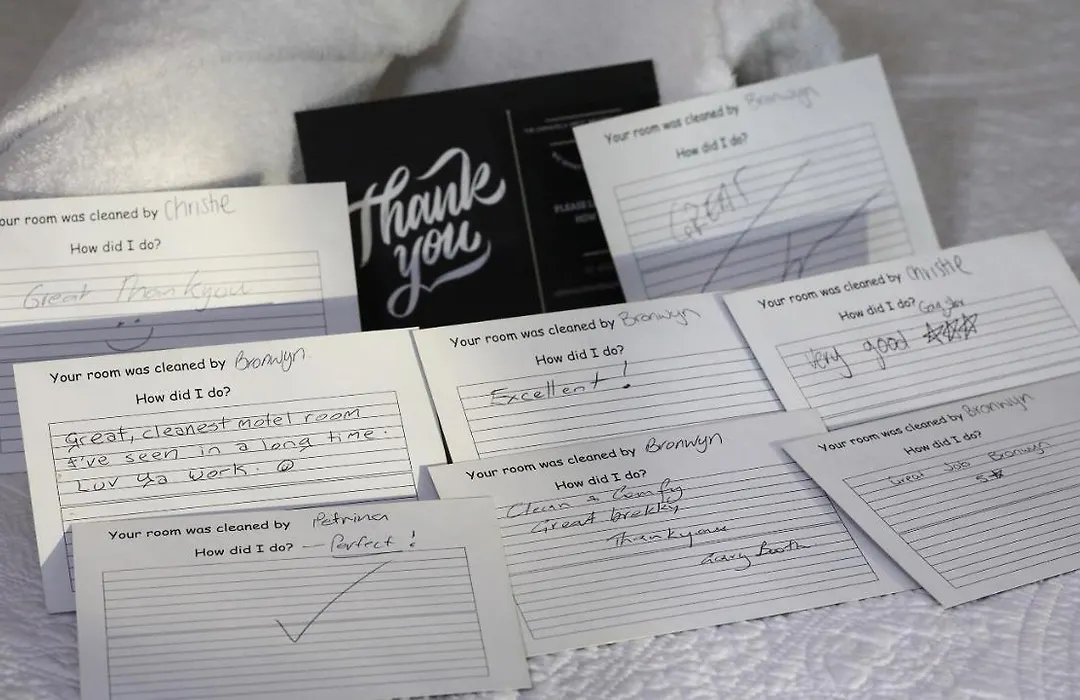 Thank
you
PLEASE
HOW
Your room was cleaned by Bronwyn
How did I do?
GREAT
our room was cleaned by Christie
How did I do?
Great Thankyou
Your room was cleaned by Christie
How did I do?
Very good
Your room was cleaned by Bronwyn
How did I do?
Excellent!
Your room was cleaned by Bronwyn
How did I do?
Great, cleanest motel room
I've seen in a long time.
Luv ya work.
Your room was cleaned by Bronwyn
How did I do?
Great Job Bronwyn
5
Your room was cleaned by Bronwyn
How did I do?
Clean & Comfy
Great brekky
Thankyou
Gary Booth
Your room was cleaned by Petrina
How did I do? — Perfect!